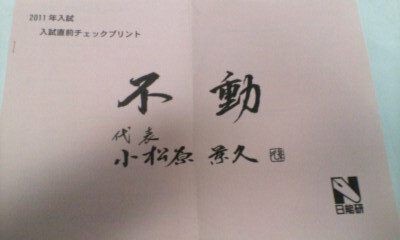 2011年入試
入試直前チェックプリント
不動
代表
小松原 兼久
日能研